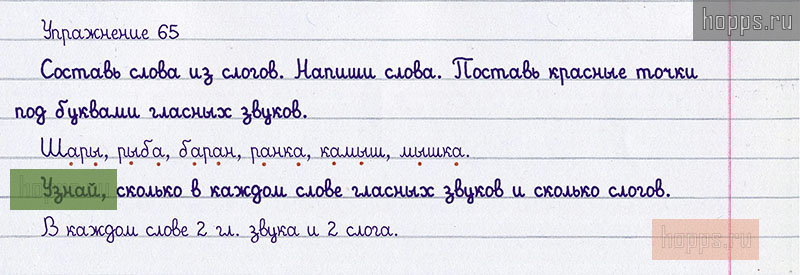 hopps.ru
Упражнение 65
Составь слова из слогов. Напиши слова. Поставь красные точки
под буквами гласных звуков.
Шары, рыба, баран, ранка, камыш, мышка.
Узнай, сколько в каждом слове гласных звуков и сколько слогов.
В каждом слове 2 гл. звука и 2 слога.
hopps.ru